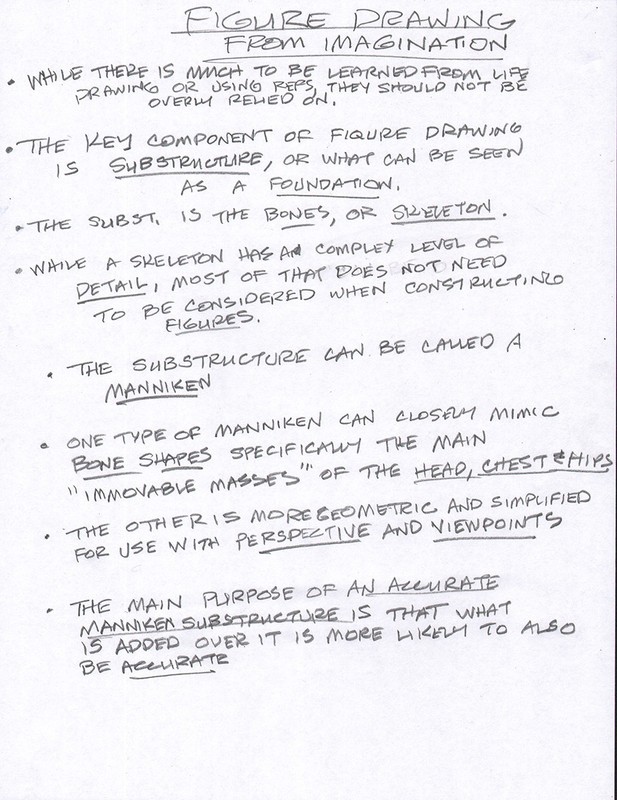 FIGURE DRAWING
FROM IMAGINATION
• WHILE THERE IS MUCH TO BE LEARNED FROM LIFE
DRAWING OR USING REFS, THEY SHOULD NOT BE
OVERLY RELIED ON.
• THE KEY COMPONENT OF FIGURE DRAWING
IS SUBSTRUCTURE, OR WHAT CAN BE SEEN
AS A FOUNDATION.
• THE SUBST. IS THE BONES, OR SKELETON.
• WHILE A SKELETON HAS A COMPLEX LEVEL OF
DETAIL, MOST OF THAT DOES NOT NEED
TO BE CONSIDERED WHEN CONSTRUCTING
FIGURES.
• THE SUBSTRUCTURE CAN BE CALLED A
MANNIKEN
• ONE TYPE OF MANNIKEN CAN CLOSELY MIMIC
BONE SHAPES SPECIFICALLY THE MAIN
"IMMOVABLE MASSES" OF THE HEAD, CHEST & HIPS
• THE OTHER IS MORE GEOMETRIC AND SIMPLIFIED
FOR USE WITH PERSPECTIVE AND VIEWPOINTS
• THE MAIN PURPOSE OF AN ACCURATE
MANNIKEN SUBSTRUCTURE IS THAT WHAT
IS ADDED OVER IT IS MORE LIKELY TO ALSO
BE ACCURATE